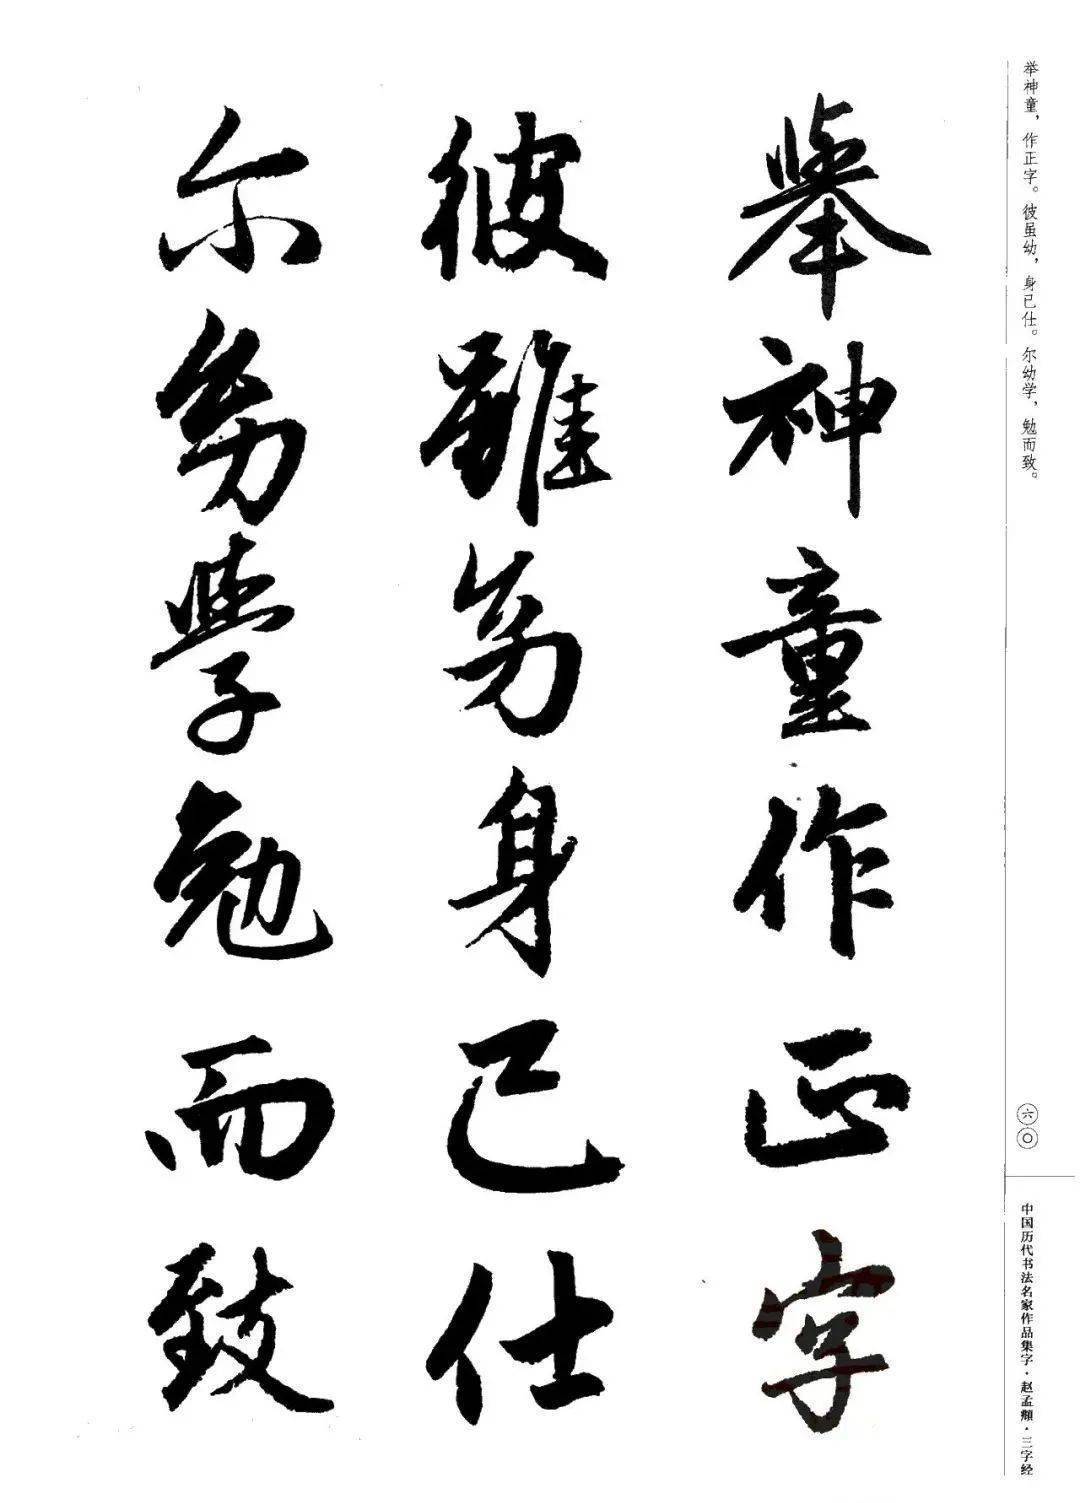 举神童，作正字。彼虽幼，身已仕。尔幼学，勉而致。
舉神童作正字
彼雖幼身已仕
尔幼學勉而致
六〇
中国历代书法名家作品集字·赵孟頫·三字经